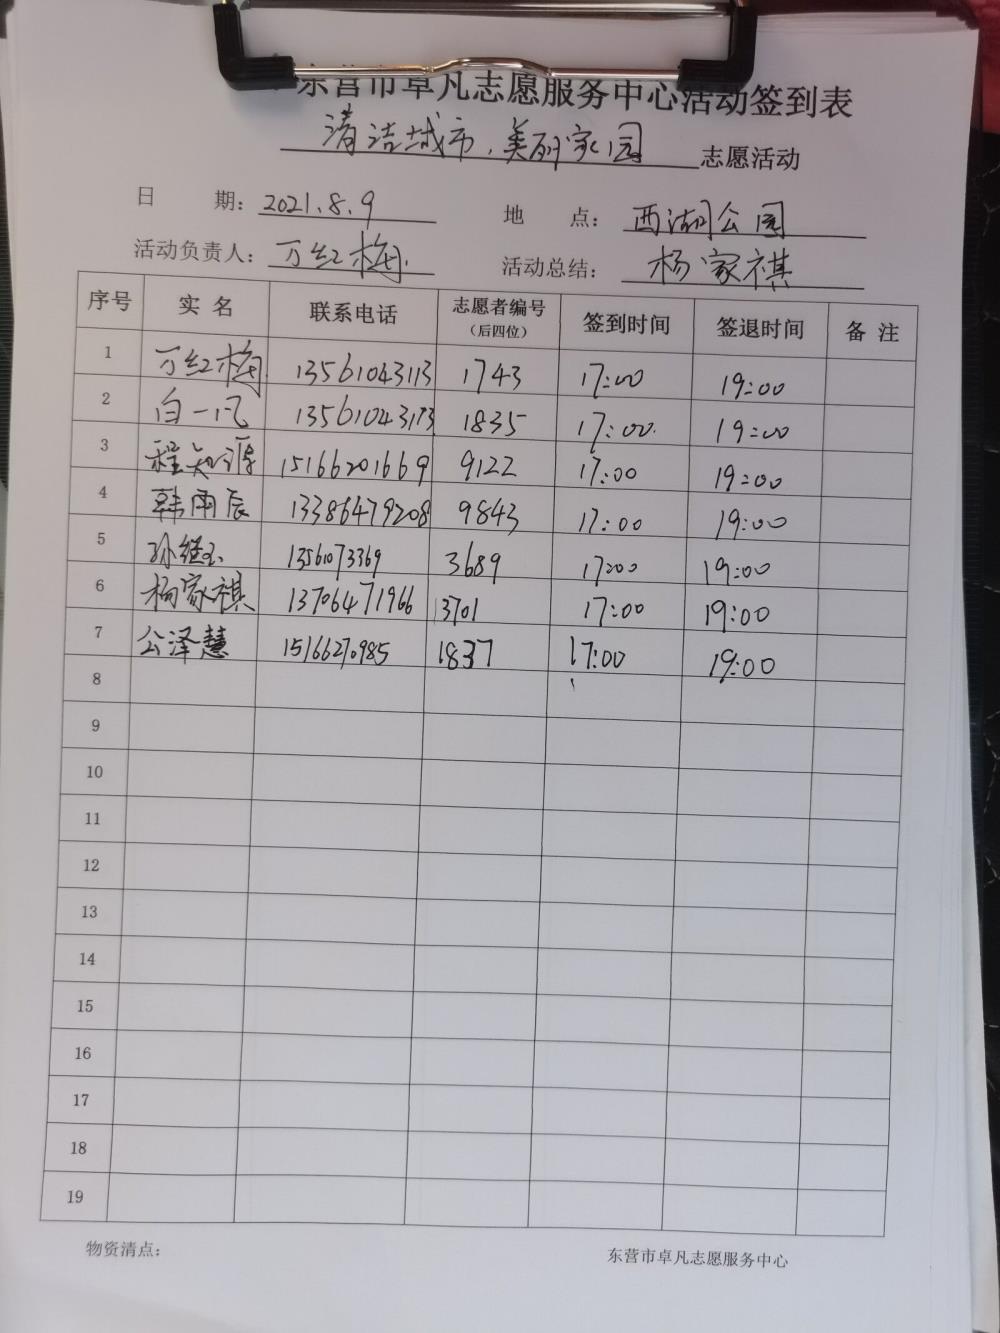 东营市卓凡志愿服务中心活动签到表
清洁城市、美丽家园 志愿活动
日 期: 2021.8.9 地 点: 西湖公园
活动负责人: 万红梅. 活动总结: 杨家祺
序号 实 名 联系电话 志愿者编号(后四位) 签到时间 签退时间 备 注
1 万红梅 13561043113 1743 17:00 19:00
2 白一凡 13561043173 1835 17:00. 19:00
3 程知 15166201669 9122 17:00 19:00
4 韩雨辰 13386479208 9843 17:00 19:00
5 孙继玉 13561073369 3689 17:00 19:00
6 杨家祺 13706471966 3701 17:00 19:00
7 公泽慧 15166270985 1837 17:00 19:00
8
9
10
11
12
13
14
15
16
17
18
19
物资清点: 东营市卓凡志愿服务中心